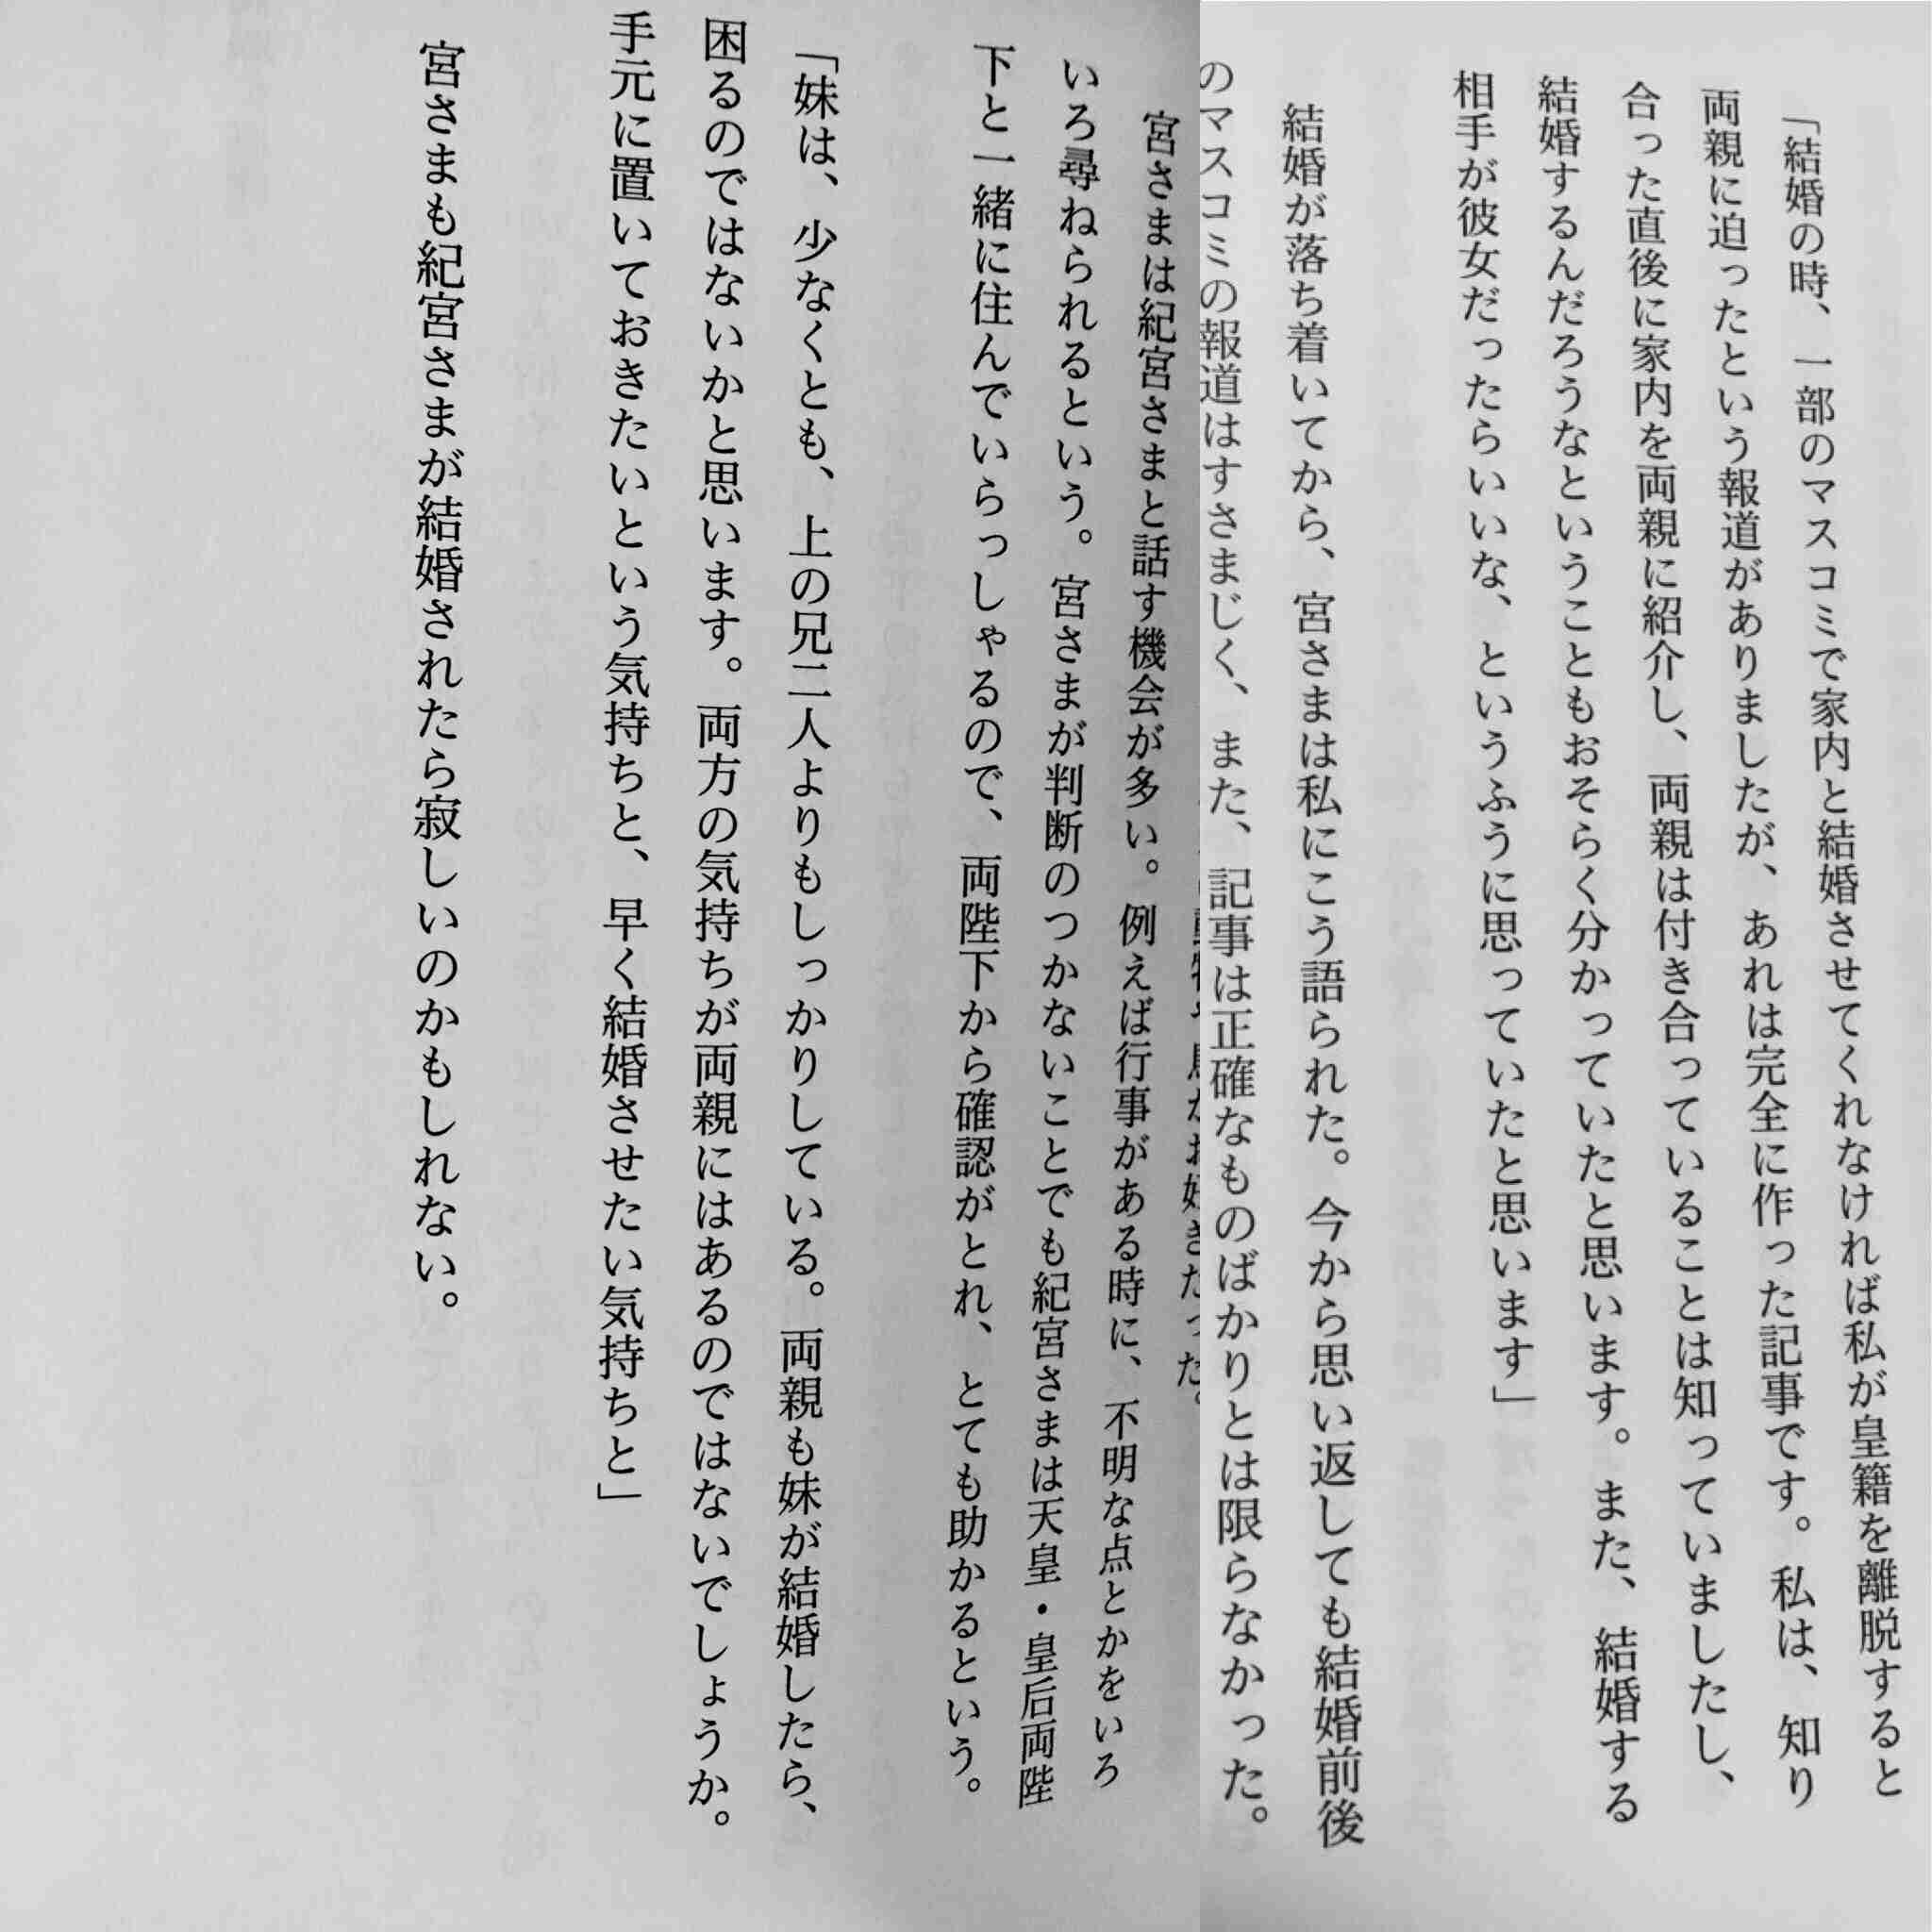 「結婚の時、一部のマスコミで家内と結婚させてくれなければ私が皇籍を離脱すると
両親に迫ったという報道がありましたが、あれは完全に作った記事です。私は、知り
合った直後に家内を両親に紹介し、両親は付き合っていることは知っていましたし、
結婚するんだろうなということもおそらく分かっていたと思います。また、結婚する
相手が彼女だったらいいな、というふうに思っていたと思います」
結婚が落ち着いてから、宮さまは私にこう語られた。今から思い返しても結婚前後
のマスコミの報道はすさまじく、また、記事は正確なものばかりとは限らなかった。
お好きだった。
宮さまは紀宮さまと話す機会が多い。例えば行事がある時に、不明な点とかをいろ
いろ尋ねられるという。宮さまが判断のつかないことでも紀宮さまは天皇・皇后両陛
下と一緒に住んでいらっしゃるので、両陛下から確認がとれ、とても助かるという。
「妹は、少なくとも、上の兄二人よりもしっかりしている。両親も妹が結婚したら、
困るのではないかと思います。両方の気持ちが両親にはあるのではないでしょうか。
手元に置いておきたいという気持ちと、早く結婚させたい気持ちと」
宮さまも紀宮さまが結婚されたら寂しいのかもしれない。